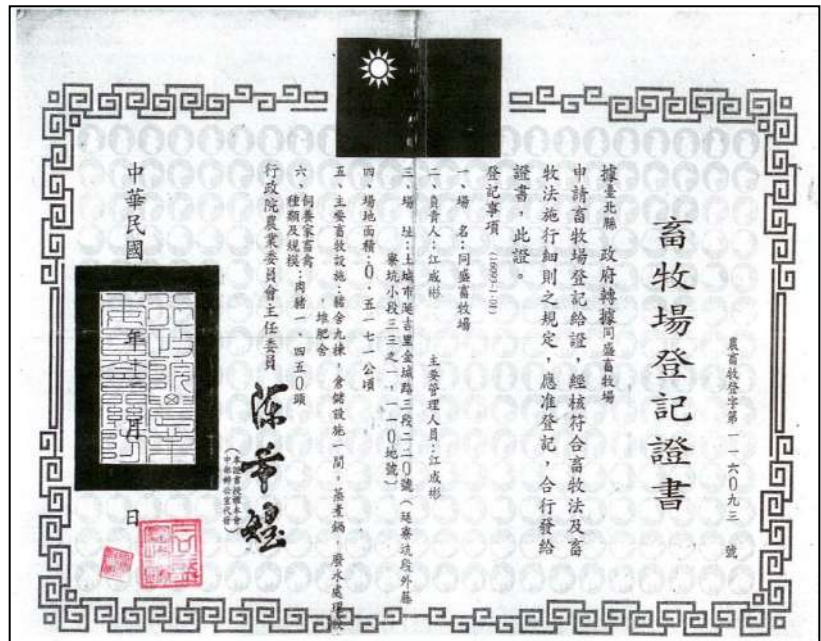 農畜牧登字第一一六0九三 號
畜牧場登記證書
據臺北縣 政府轉據同盛畜牧場
申請畜牧場登記給證,經核符合畜牧法及畜
牧法施行細則之規定,應准登記,合行發給
證書,此證。
登記事項 (16093-1-01)
一、場 名:同盛畜牧場
二、負責人:江成彬 主要管理人員:江成彬
三、場 址:土城市延吉里金城路三段二二0號(延寮坑段外藤
寮坑小段三三之一,一一0地號)
四、場地面積:0.五一七一公頃
五、主要畜牧設施:豬舍九棟,倉儲設施一間,蒸煮鍋,廢水處理
,堆肥舍
六、飼養家畜禽
種類及規模:肉豬一、四五0頭
行政院農業委員會主任委員 陳希煌
(本證書授權本會
中部辦公室代發)
中華民國 年十 月 日